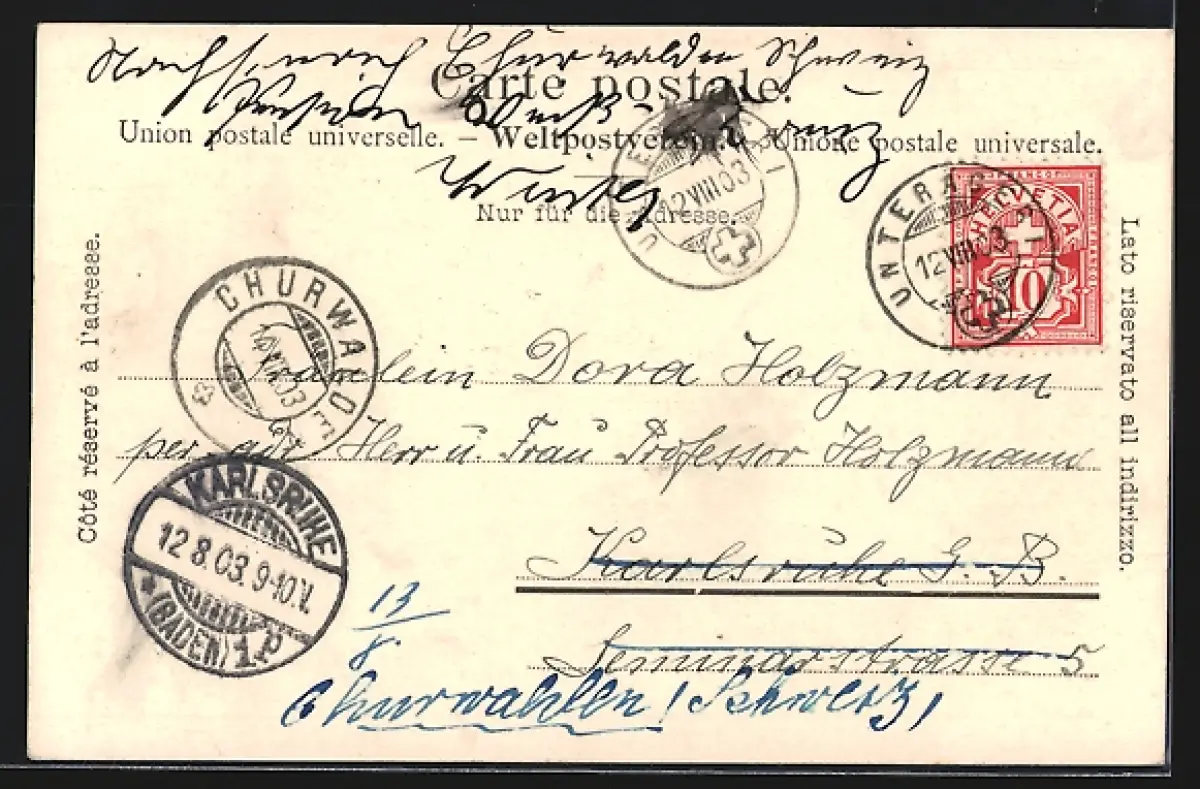 Nachs. nach Churwalden Schweiz
Carte postale.
Pension Weiß Kreuz
Union postale universelle. — Weltpostverein. — Unione postale universale.
Nur für die Adresse.
12 VIII 03
UNTERÄGERI
12 VIII 03
HELVETIA
FRANCO
10
Côté réservé à l'adresse.
Lato riservato all indirizzo.
CHURWALDEN
Fräulein Dora Holzmann
per adr Herr u. Frau Professor Holzmann
KARLSRUHE
12 8.03. 9-10 V.
* (BADEN) 1.p
Karlsruhe G. B.
13/8
Seminarstrasse 5
Churwahlen / Schweiz,